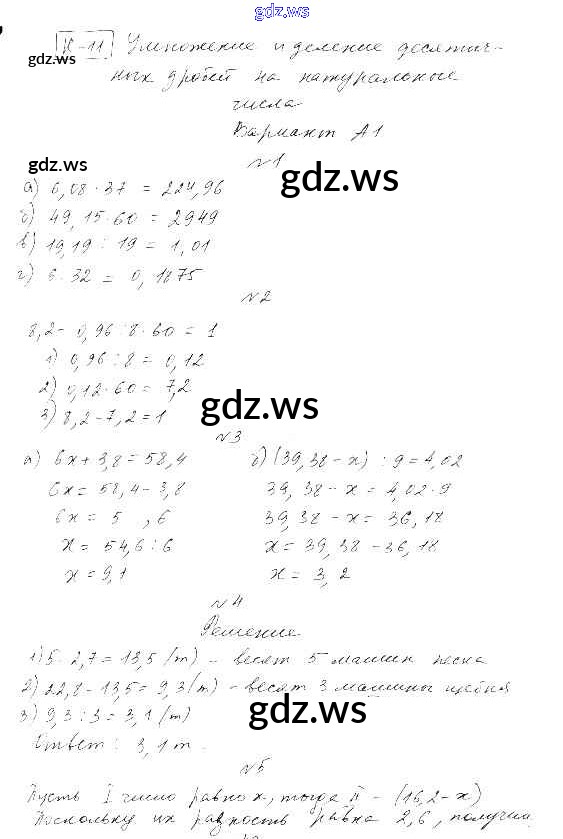 gdz.ws
К-11 Умножение и деление десятич-
gdz.ws
ных дробей на натуральные
числа.
Вариант А1
№1
gdz.ws
gdz.ws
а) 6,08 · 37 = 224,96
б) 49,15 · 60 = 2949
в) 19,19 : 19 = 1,01
г) 6 : 32 = 0,1875
№2
8,2 - 0,96 : 8 · 60 = 1
1) 0,96 : 8 = 0,12
2) 0,12 · 60 = 7,2
3) 8,2 - 7,2 = 1
gdz.ws
№3
а) 6x + 3,8 = 58,4
6x = 58,4 - 3,8
6x = 5 ,6
x = 54,6 : 6
x = 9,1
б) (39,38 - x) : 9 = 4,02
39,38 - x = 4,02 · 9
39,38 - x = 36,18
x = 39,38 - 36,18
x = 3,2
№4
Решение
1) 5 · 2,7 = 13,5 (т) - весят 5 машин песка
2) 22,8 - 13,5 = 9,3 (т) - весят 3 машины щебня
3) 9,3 : 3 = 3,1 (т)
gdz.ws
Ответ: 3,1 т.
№5
Пусть I число равно x, тогда II - (16,2 - x)
Поскольку их разность равна 2,6, получим